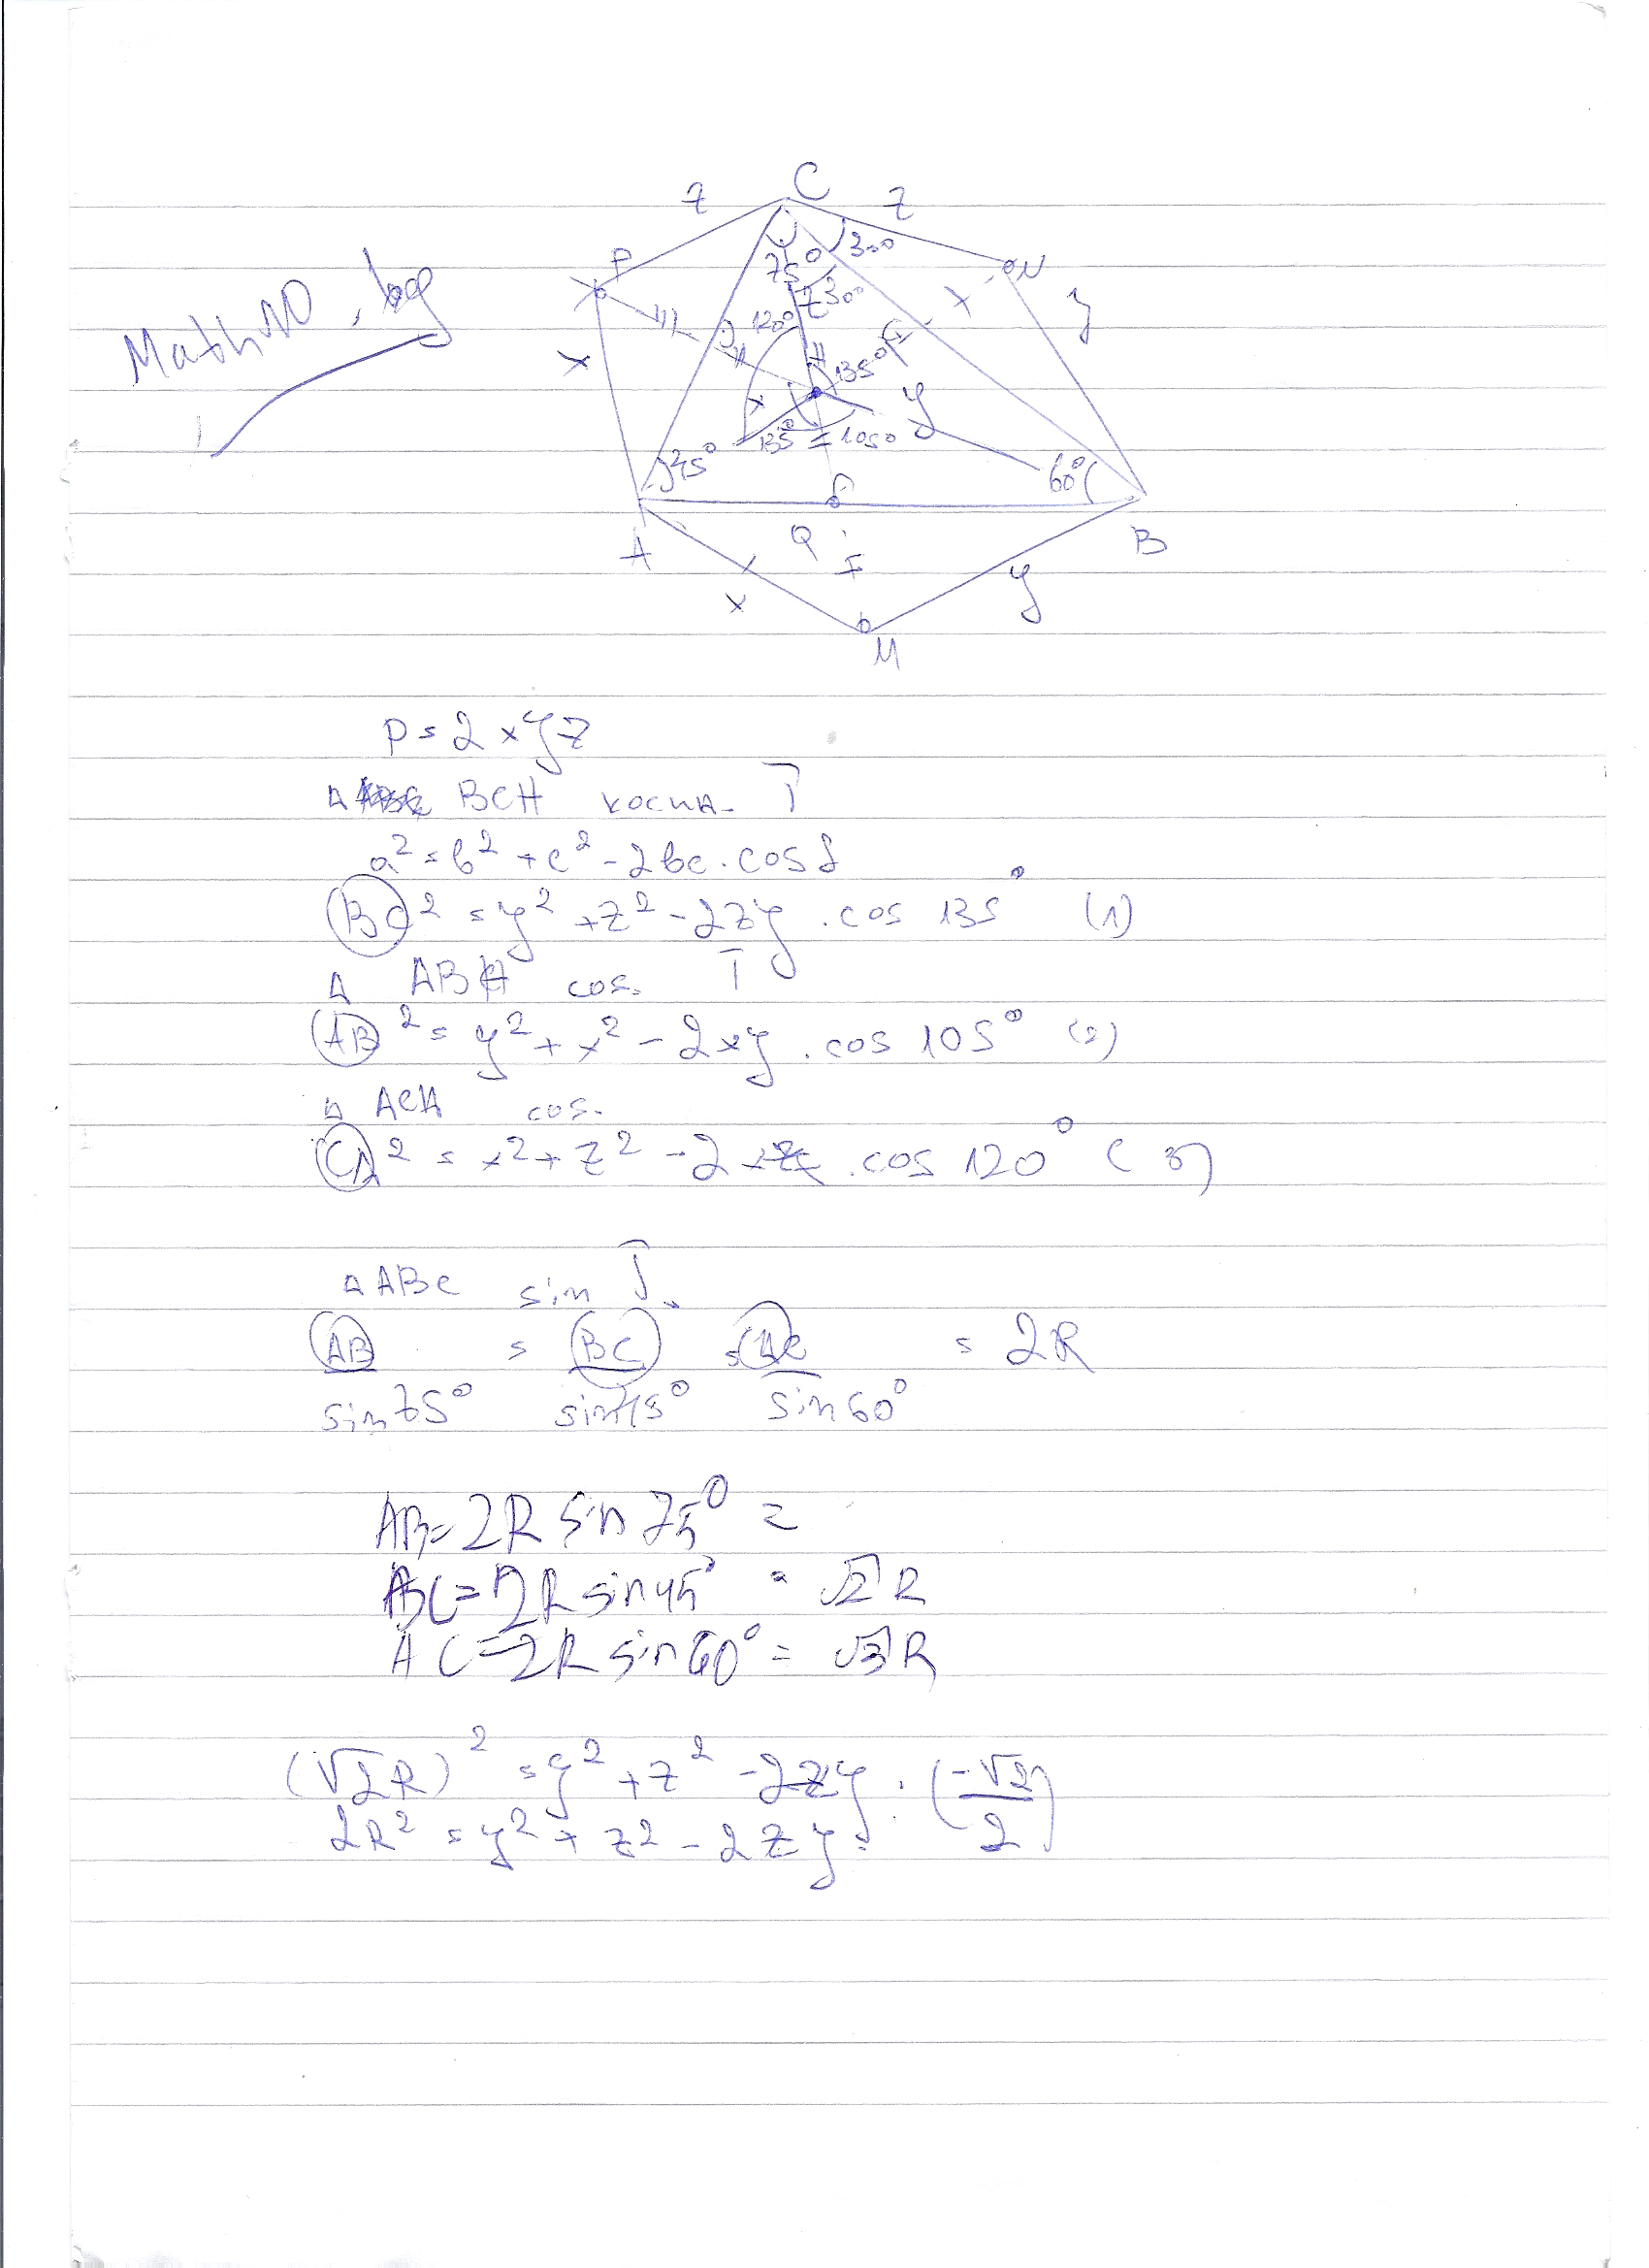 Math10.bg
z C z
P 75° 30° N
z 30° x y
120°
x 135°
x y
45° 135° = 105° 60°
A Q B
I
x y
M
P = 2xyz
△ BCH косин. T
a² = b² + c² - 2bc . cos α
BC² = y² + z² - 2zy . cos 135° (1)
△ ABH cos. T
AB² = y² + x² - 2xy . cos 105° (2)
△ ACH cos.
CA² = x² + z² - 2xz . cos 120° (3)
△ ABC sin T.
AB = BC = AC = 2R
sin 75° sin 45° sin 60°
AB = 2R sin 75° =
BC = 2R sin 45° = √2 R
AC = 2R sin 60° = √3 R
(√2R)² = y² + z² - 2zy . (-√2/2)
2R² = y² + z² - 2zy .